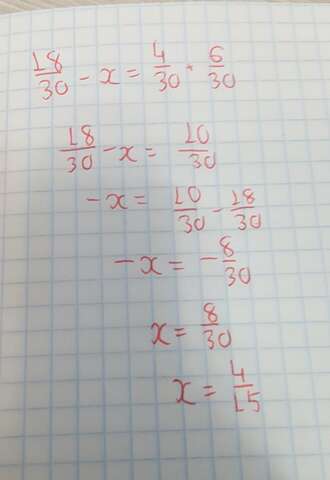 18/30 - x = 4/30 · 6/30
18/30 - x = 10/30
-x = 10/30 - 18/30
-x = -8/30
x = 8/30
x = 4/15